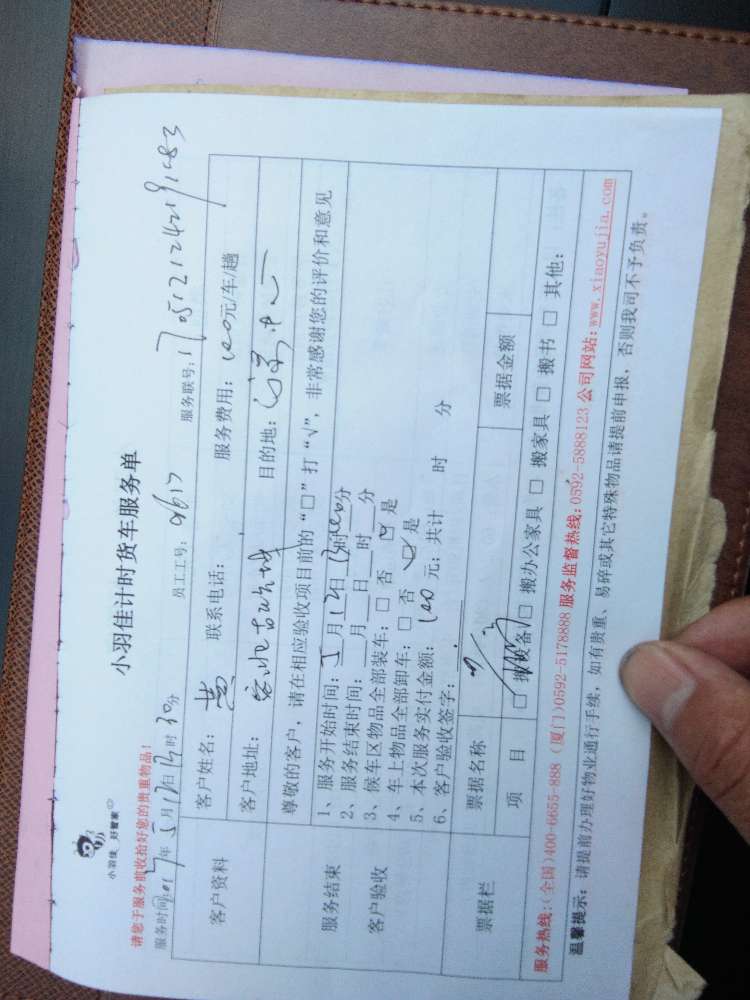 小羽佳 好管家
小羽佳计时货车服务单
请您于服务前收拾好您的贵重物品!
服务时间:2017年5月12日13时30分 员工工号:9617 服务联号:1705121242191083
客户资料
客户姓名:黄 联系电话: 服务费用:100元/车/趟
客户地址: 目的地:
服务结束
客户验收
尊敬的客户,请在相应验收项目前的“□”打“√”,非常感谢您的评价和意见
1、服务开始时间:5月12日13时00分
2、服务结束时间: 月 日 时 分
3、候车区物品全部装车:□ 否 ☑ 是
4、车上物品全部卸车:□ 否 ☑ 是
5、本次服务实付金额:100元;共计 时 分
6、客户验收签字:
票据栏
票据名称 票据金额
项 目 □ 搬设备 □ 搬办公家具 □ 搬家具 □ 搬书 □ 其他:
服务热线:(全国)400-6655-888 (厦门)0592-5178888 服务监督热线:0592-5888123 公司网站:www.xiaoyujia.com
温馨提示:请提前办理好物业通行手续,如有贵重、易碎或其它特殊物品请提前申报,否则我司不予负责。